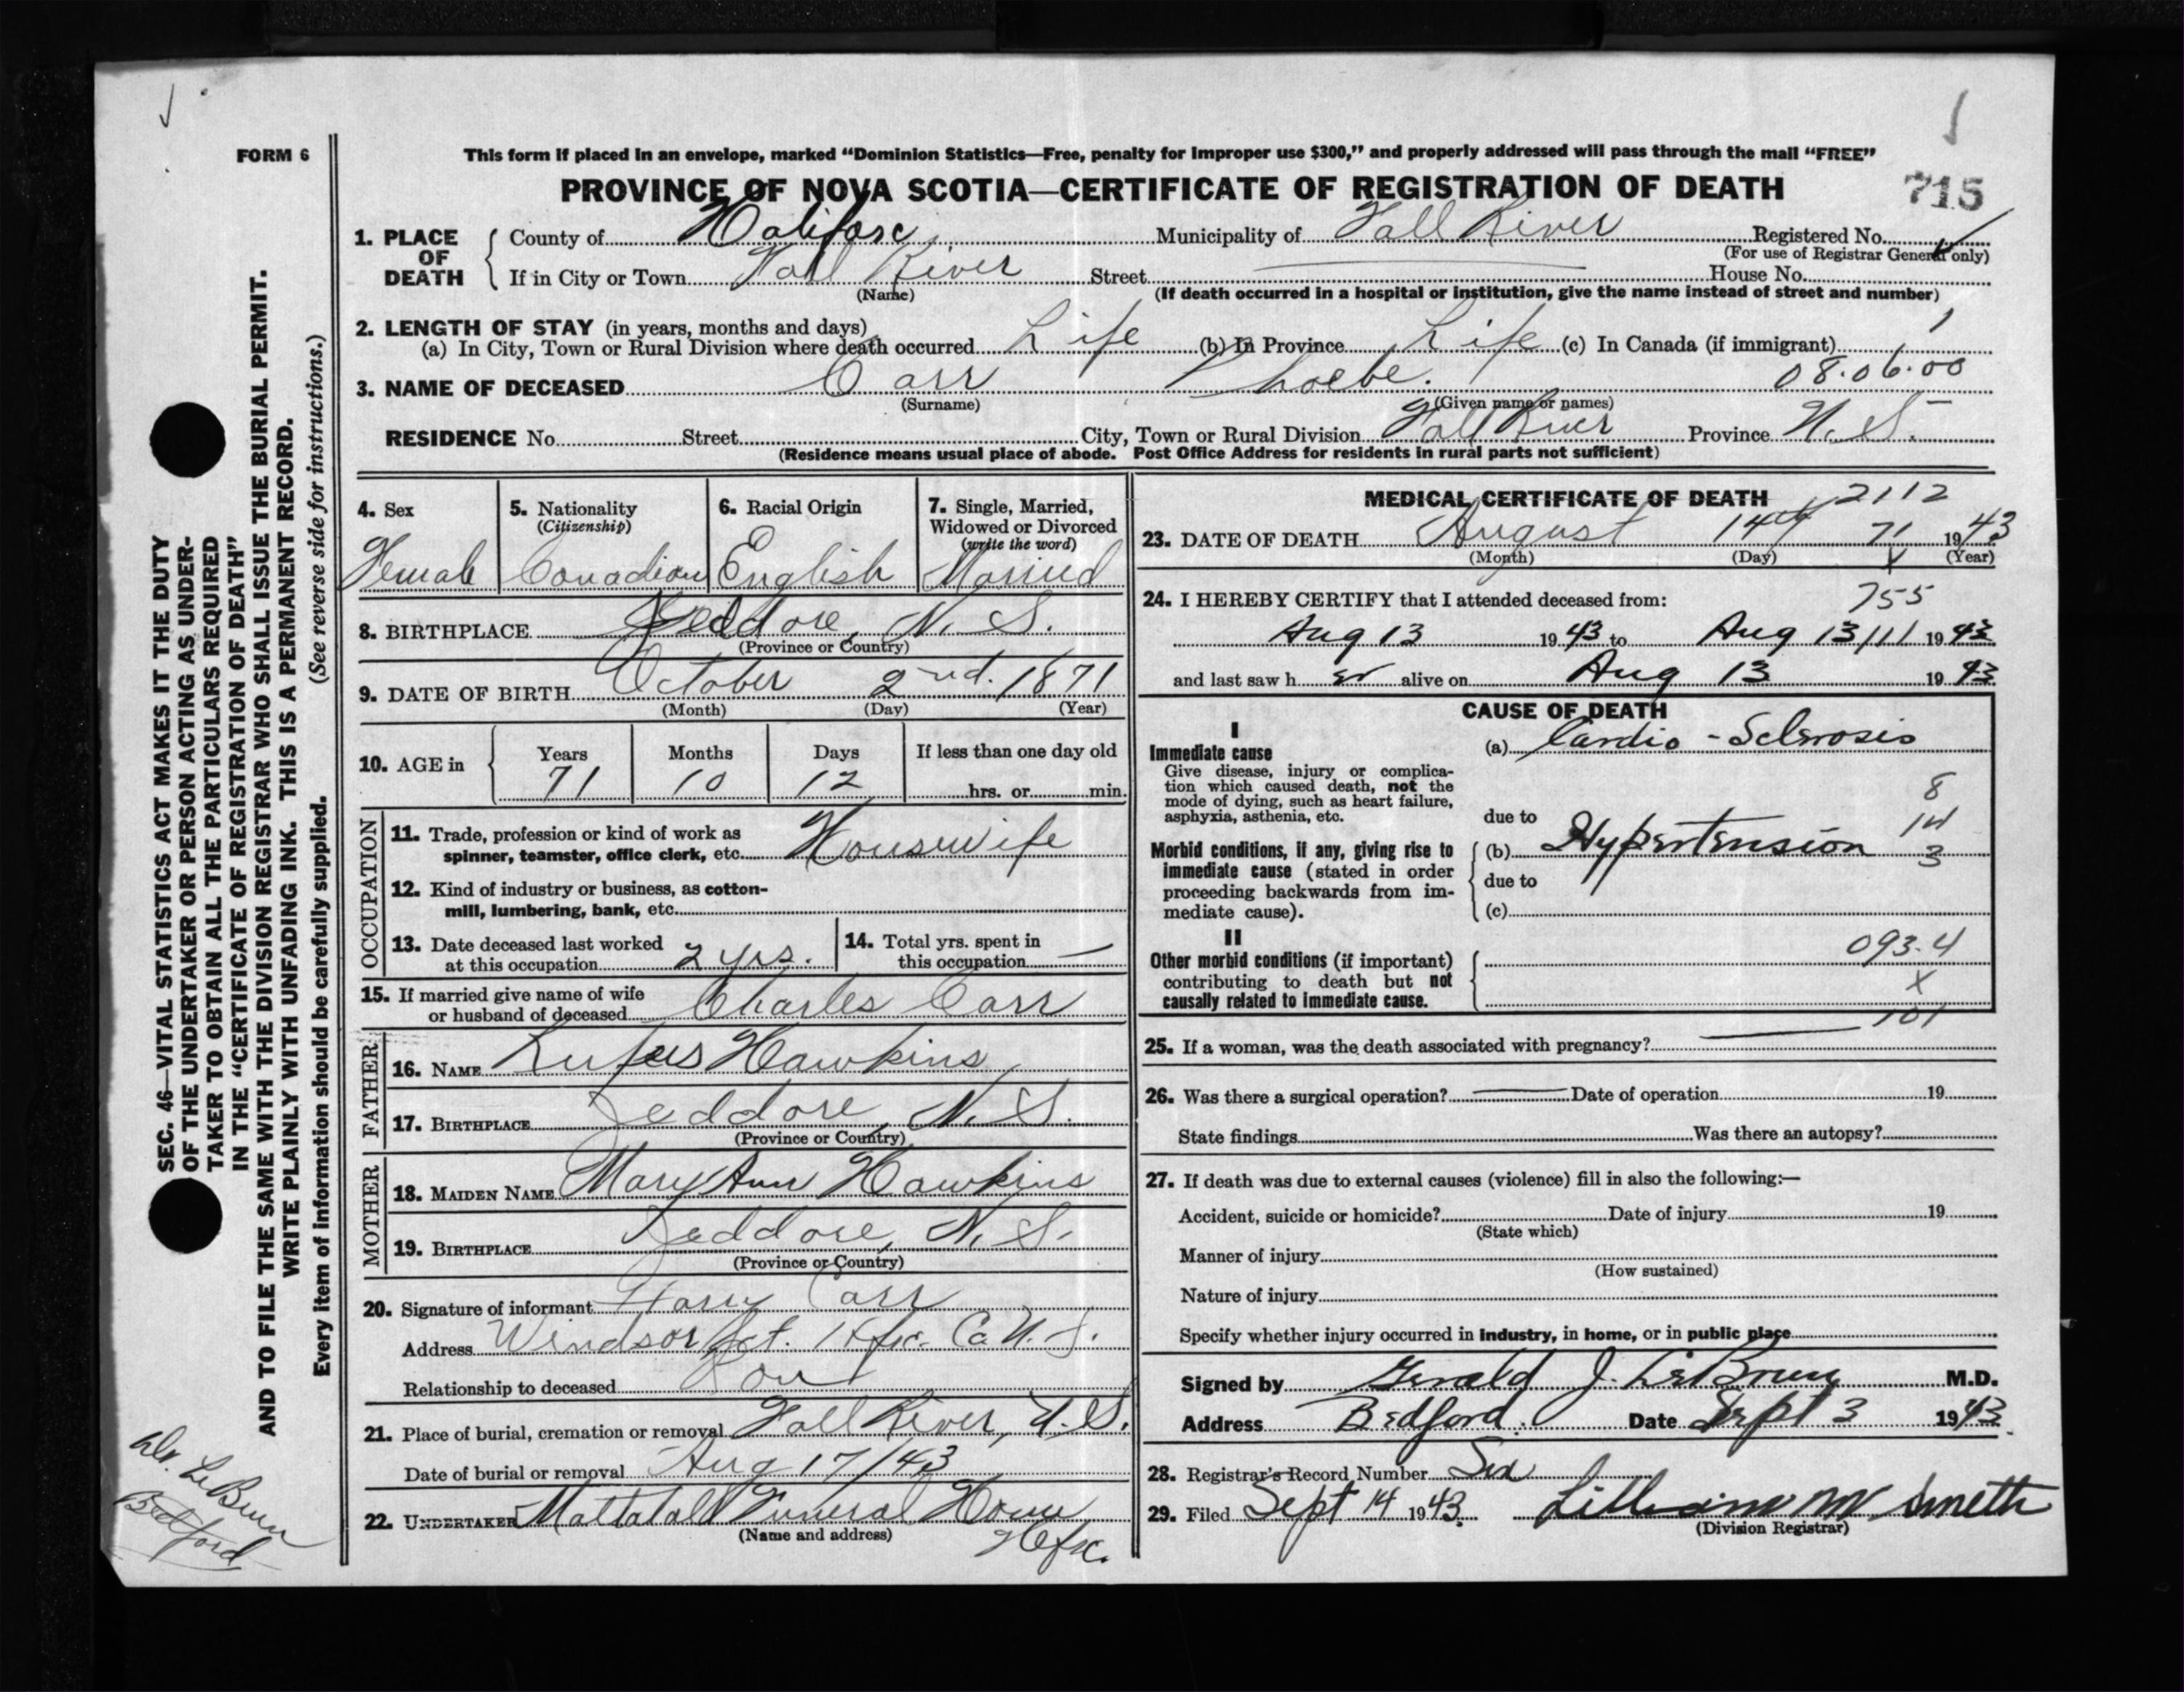 FORM 6
This form if placed in an envelope, marked “Dominion Statistics—Free, penalty for improper use $300,” and properly addressed will pass through the mail “FREE”
PROVINCE OF NOVA SCOTIA—CERTIFICATE OF REGISTRATION OF DEATH
715
1. PLACE OF DEATH
County of Halifax Municipality of Fall River Registered No.
(For use of Registrar General only)
If in City or Town Fall River Street House No.
(Name) (If death occurred in a hospital or institution, give the name instead of street and number)
2. LENGTH OF STAY (in years, months and days)
(a) In City, Town or Rural Division where death occurred Life (b) In Province Life (c) In Canada (if immigrant)
3. NAME OF DECEASED Carr Phoebe. 08.06.00
(Surname) (Given name or names)
RESIDENCE No. Street City, Town or Rural Division Fall River Province N. S.
(Residence means usual place of abode. Post Office Address for residents in rural parts not sufficient)
4. Sex 5. Nationality 6. Racial Origin 7. Single, Married,
(Citizenship) Widowed or Divorced
(write the word)
Female Canadian English Married
8. BIRTHPLACE Jeddore, N. S.
(Province or Country)
9. DATE OF BIRTH October 2nd. 1871
(Month) (Day) (Year)
10. AGE in Years Months Days If less than one day old
71 10 12 hrs. or min.
OCCUPATION
11. Trade, profession or kind of work as
spinner, teamster, office clerk, etc. Housewife
12. Kind of industry or business, as cotton-
mill, lumbering, bank, etc.
13. Date deceased last worked
at this occupation 2 yrs.
14. Total yrs. spent in
this occupation —
15. If married give name of wife
or husband of deceased Charles Carr
FATHER
16. NAME Rufus Hawkins
17. BIRTHPLACE Jeddore, N. S.
(Province or Country)
MOTHER
18. MAIDEN NAME Mary Ann Hawkins
19. BIRTHPLACE Jeddore, N. S.
(Province or Country)
20. Signature of informant Harry Carr
Address Windsor Jct. Hfx. Co. N. S.
Relationship to deceased Son
21. Place of burial, cremation or removal Fall River, N. S.
Date of burial or removal Aug 17/43
22. UNDERTAKER Mattatall Funeral Home
(Name and address) Hfx.
MEDICAL CERTIFICATE OF DEATH 2112
23. DATE OF DEATH August 14th 71 1943
(Month) (Day) (Year)
24. I HEREBY CERTIFY that I attended deceased from: 755
Aug 13 1943 to Aug 13 1943
and last saw her alive on Aug 13 1943
CAUSE OF DEATH
I
Immediate cause (a) Cardio-Sclerosis
Give disease, injury or complica-
tion which caused death, not the
mode of dying, such as heart failure,
asphyxia, asthenia, etc. due to
8
14
Morbid conditions, if any, giving rise to (b) Hypertension 3
immediate cause (stated in order
proceeding backwards from im- due to
mediate cause). (c)
II
Other morbid conditions (if important) 093.4
contributing to death but not X
causally related to immediate cause.
101
25. If a woman, was the death associated with pregnancy?
26. Was there a surgical operation? Date of operation 19
State findings Was there an autopsy?
27. If death was due to external causes (violence) fill in also the following:—
Accident, suicide or homicide? Date of injury 19
(State which)
Manner of injury
(How sustained)
Nature of injury
Specify whether injury occurred in industry, in home, or in public place
Signed by Gerald J. LeBrun M.D.
Address Bedford. Date Sept 3 1943
28. Registrar's Record Number
29. Filed Sept 14 1943. Lillian M Smeth
(Division Registrar)
SEC. 46—VITAL STATISTICS ACT MAKES IT THE DUTY
OF THE UNDERTAKER OR PERSON ACTING AS UNDER-
TAKER TO OBTAIN ALL THE PARTICULARS REQUIRED
IN THE “CERTIFICATE OF REGISTRATION OF DEATH”
AND TO FILE THE SAME WITH THE DIVISION REGISTRAR WHO SHALL ISSUE THE BURIAL PERMIT.
WRITE PLAINLY WITH UNFADING INK. THIS IS A PERMANENT RECORD.
Every item of information should be carefully supplied. (See reverse side for instructions.)
Dr. LeBrun
Bedford